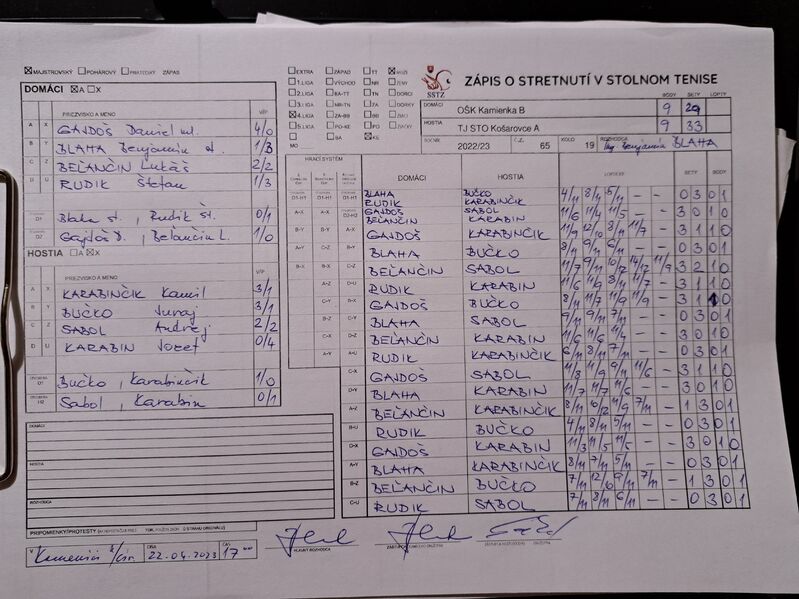 MAJSTROVSKÝ POHÁROVÝ PRIATEĽSKÝ ZÁPAS
DOMÁCI A X
PRIEZVISKO A MENO V/P
A X GAJDOŠ Daniel ml. 4/0
B Y BLAHA Benjamín st. 1/3
C Z BELANČIN Lukáš 2/2
D U RUDIK Štefan 1/3
D1 Blaha st., Rudik Št. 0/1
D2 Gajdoš D., Belančin L. 1/0
HOSTIA A X
PRIEZVISKO A MENO V/P
A X KARABINČIK Kamil 3/1
B Y BUČKO Juraj 3/1
C Z SABOL Andrej 2/2
D U KARABIN Jozef 0/4
Bučko, Karabinčik 1/0
Sabol, Karabin 0/1
DOMÁCI
HOSTIA
ROZHODCA
PRIPOMIENKY/PROTESTY
22.04.2023 17
EXTRA ZÁPAD TT MUŽI
1.LIGA VÝCHOD NR ŽENY
2.LIGA BA-TT TN DORCI
3.LIGA NR-TN ZA DORKY
4.LIGA ZA-BB BB
5.LIGA PO-KE PO
MO BA KE
SSTZ
ZÁPIS O STRETNUTÍ V STOLNOM TENISE
BODY SETY LOPTY
DOMÁCI OŠK Kamienka B 9 29
HOSTIA TJ STO Košarovce A 9 33
ROČNÍK 2022/23 Č.Z. 65 KOLO 19 ROZHODCA Ing. Benjamín BLAHA
HRACÍ SYSTÉM DOMÁCI HOSTIA LOPTIČKY SETY BODY
BLAHA RUDIK BUČKO KARABINČIK 4/11 8/11 5/11 – – 0 3 0 1
GAJDOŠ BELANČIN SABOL KARABIN 11/6 11/9 11/5 – – 3 0 1 0
GAJDOŠ KARABINČIK 11/9 12/10 8/11 11/7 – 3 1 1 0
BLAHA BUČKO 8/11 9/11 6/11 – – 0 3 0 1
BELANČIN SABOL 11/7 9/11 10/12 14/12 11/9 3 2 1 0
RUDIK KARABIN 11/6 11/9 8/11 11/7 – 3 1 1 0
GAJDOŠ BUČKO 8/11 11/7 11/9 11/9 – 3 1 1 0
BLAHA SABOL 9/11 9/11 7/11 – – 0 3 0 1
BELANČIN KARABIN 11/6 11/6 11/4 – – 3 0 1 0
RUDIK KARABINČIK 6/11 8/11 7/11 – – 0 3 0 1
GAJDOŠ SABOL 11/8 11/9 9/11 11/6 – 3 1 1 0
BLAHA KARABIN 11/7 11/7 11/6 – – 3 0 1 0
BELANČIN KARABINČIK 8/11 10/12 11/9 7/11 – 1 3 0 1
RUDIK BUČKO 4/11 8/11 5/11 – – 0 3 0 1
GAJDOŠ KARABIN 11/3 11/5 11/5 – – 3 0 1 0
BLAHA KARABINČIK 8/11 7/11 5/11 – – 0 3 0 1
BELANČIN BUČKO 7/11 12/10 9/11 7/11 – 1 3 0 1
RUDIK SABOL 7/11 8/11 6/11 – – 0 3 0 1
HLAVNÝ ROZHODCA